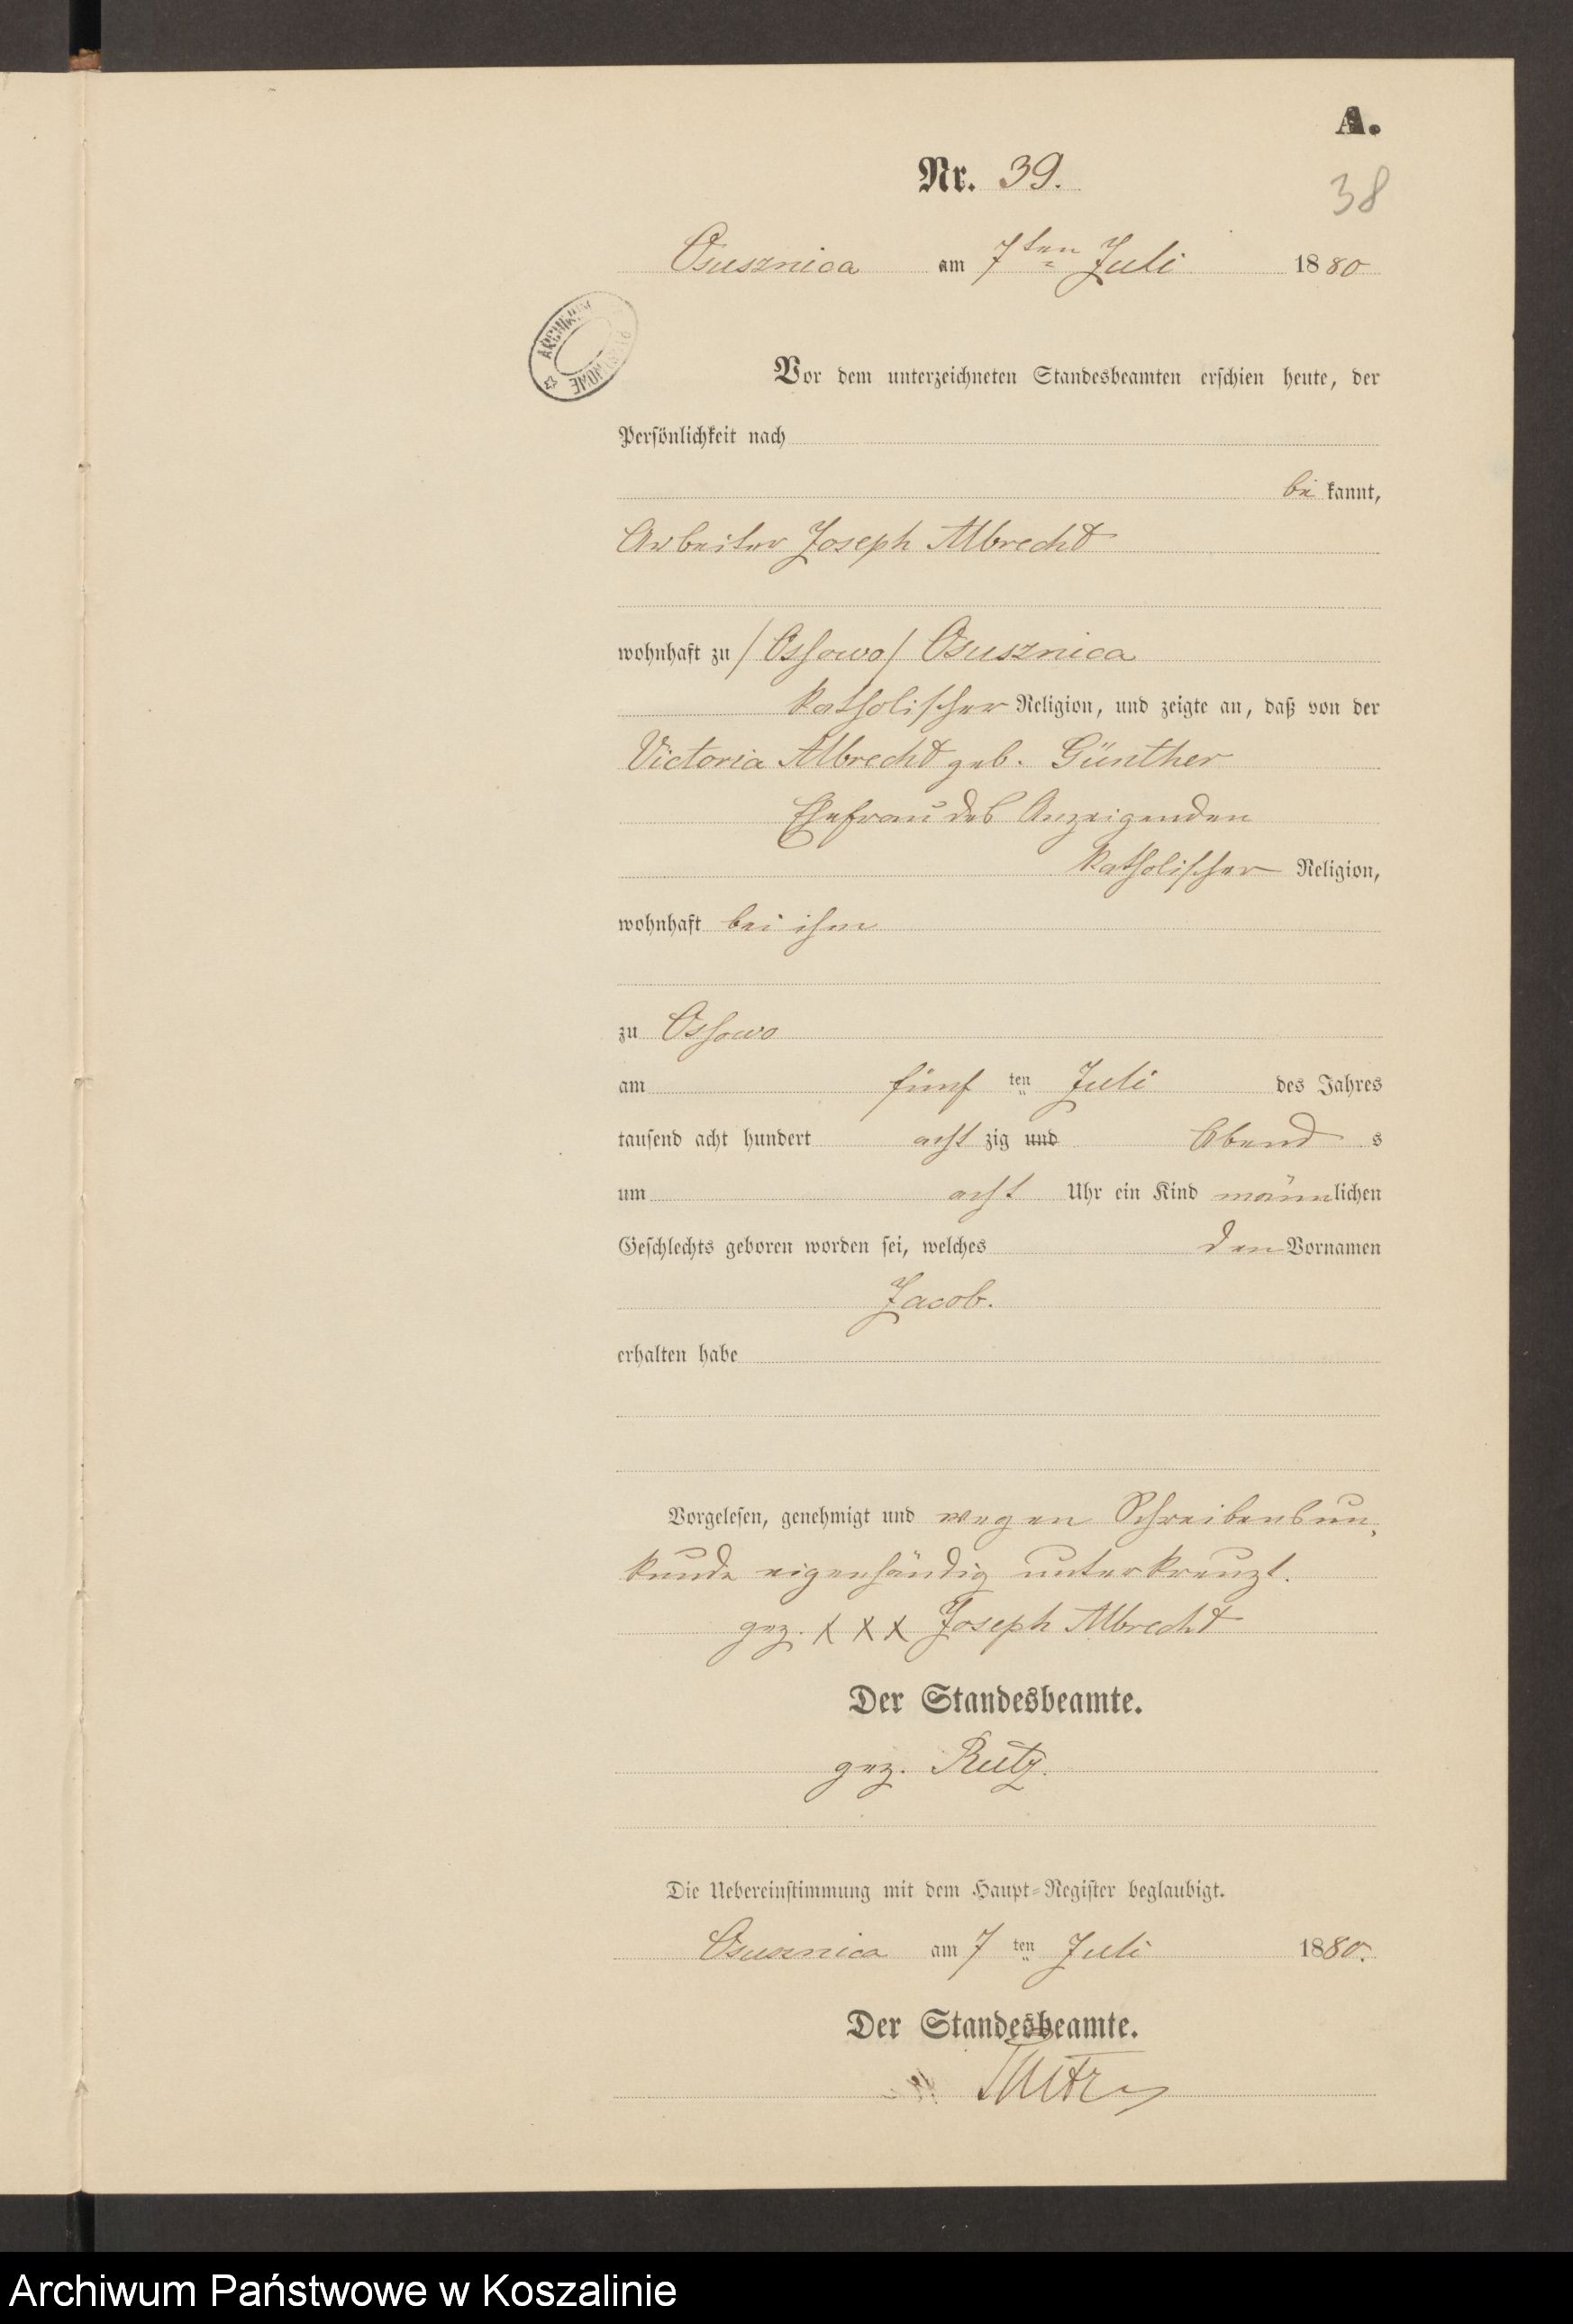 A.
Nr. 39.
38
Osusznica am 7ten Juli 1880
ARCHIWUM
Vor dem unterzeichneten Standesbeamten erschien heute, der
Persönlichkeit nach
be kannt,
Arbeiter Joseph Albrecht
wohnhaft zu /Ossowo/ Osusznica
katholischer Religion, und zeigte an, daß von der
Victoria Albrecht geb. Günther
Ehefrau des Anzeigenden
katholischer Religion,
wohnhaft bei ihm
zu Ossowo
am fünf ten Juli des Jahres
tausend acht hundert acht zig und Abend s
um acht Uhr ein Kind männlichen
Geschlechts geboren worden sei, welches den Vornamen
Jacob.
erhalten habe
Vorgelesen, genehmigt und wegen Schreibensun,
kunde eigenhändig unterkreuzt.
gez. X X X Joseph Albrecht
Der Standesbeamte.
gez. Rutz.
Die Uebereinstimmung mit dem Haupt-Register beglaubigt.
Osusznica am 7 ten Juli 1880.
Der Standesbeamte.
Archiwum Państwowe w Koszalinie